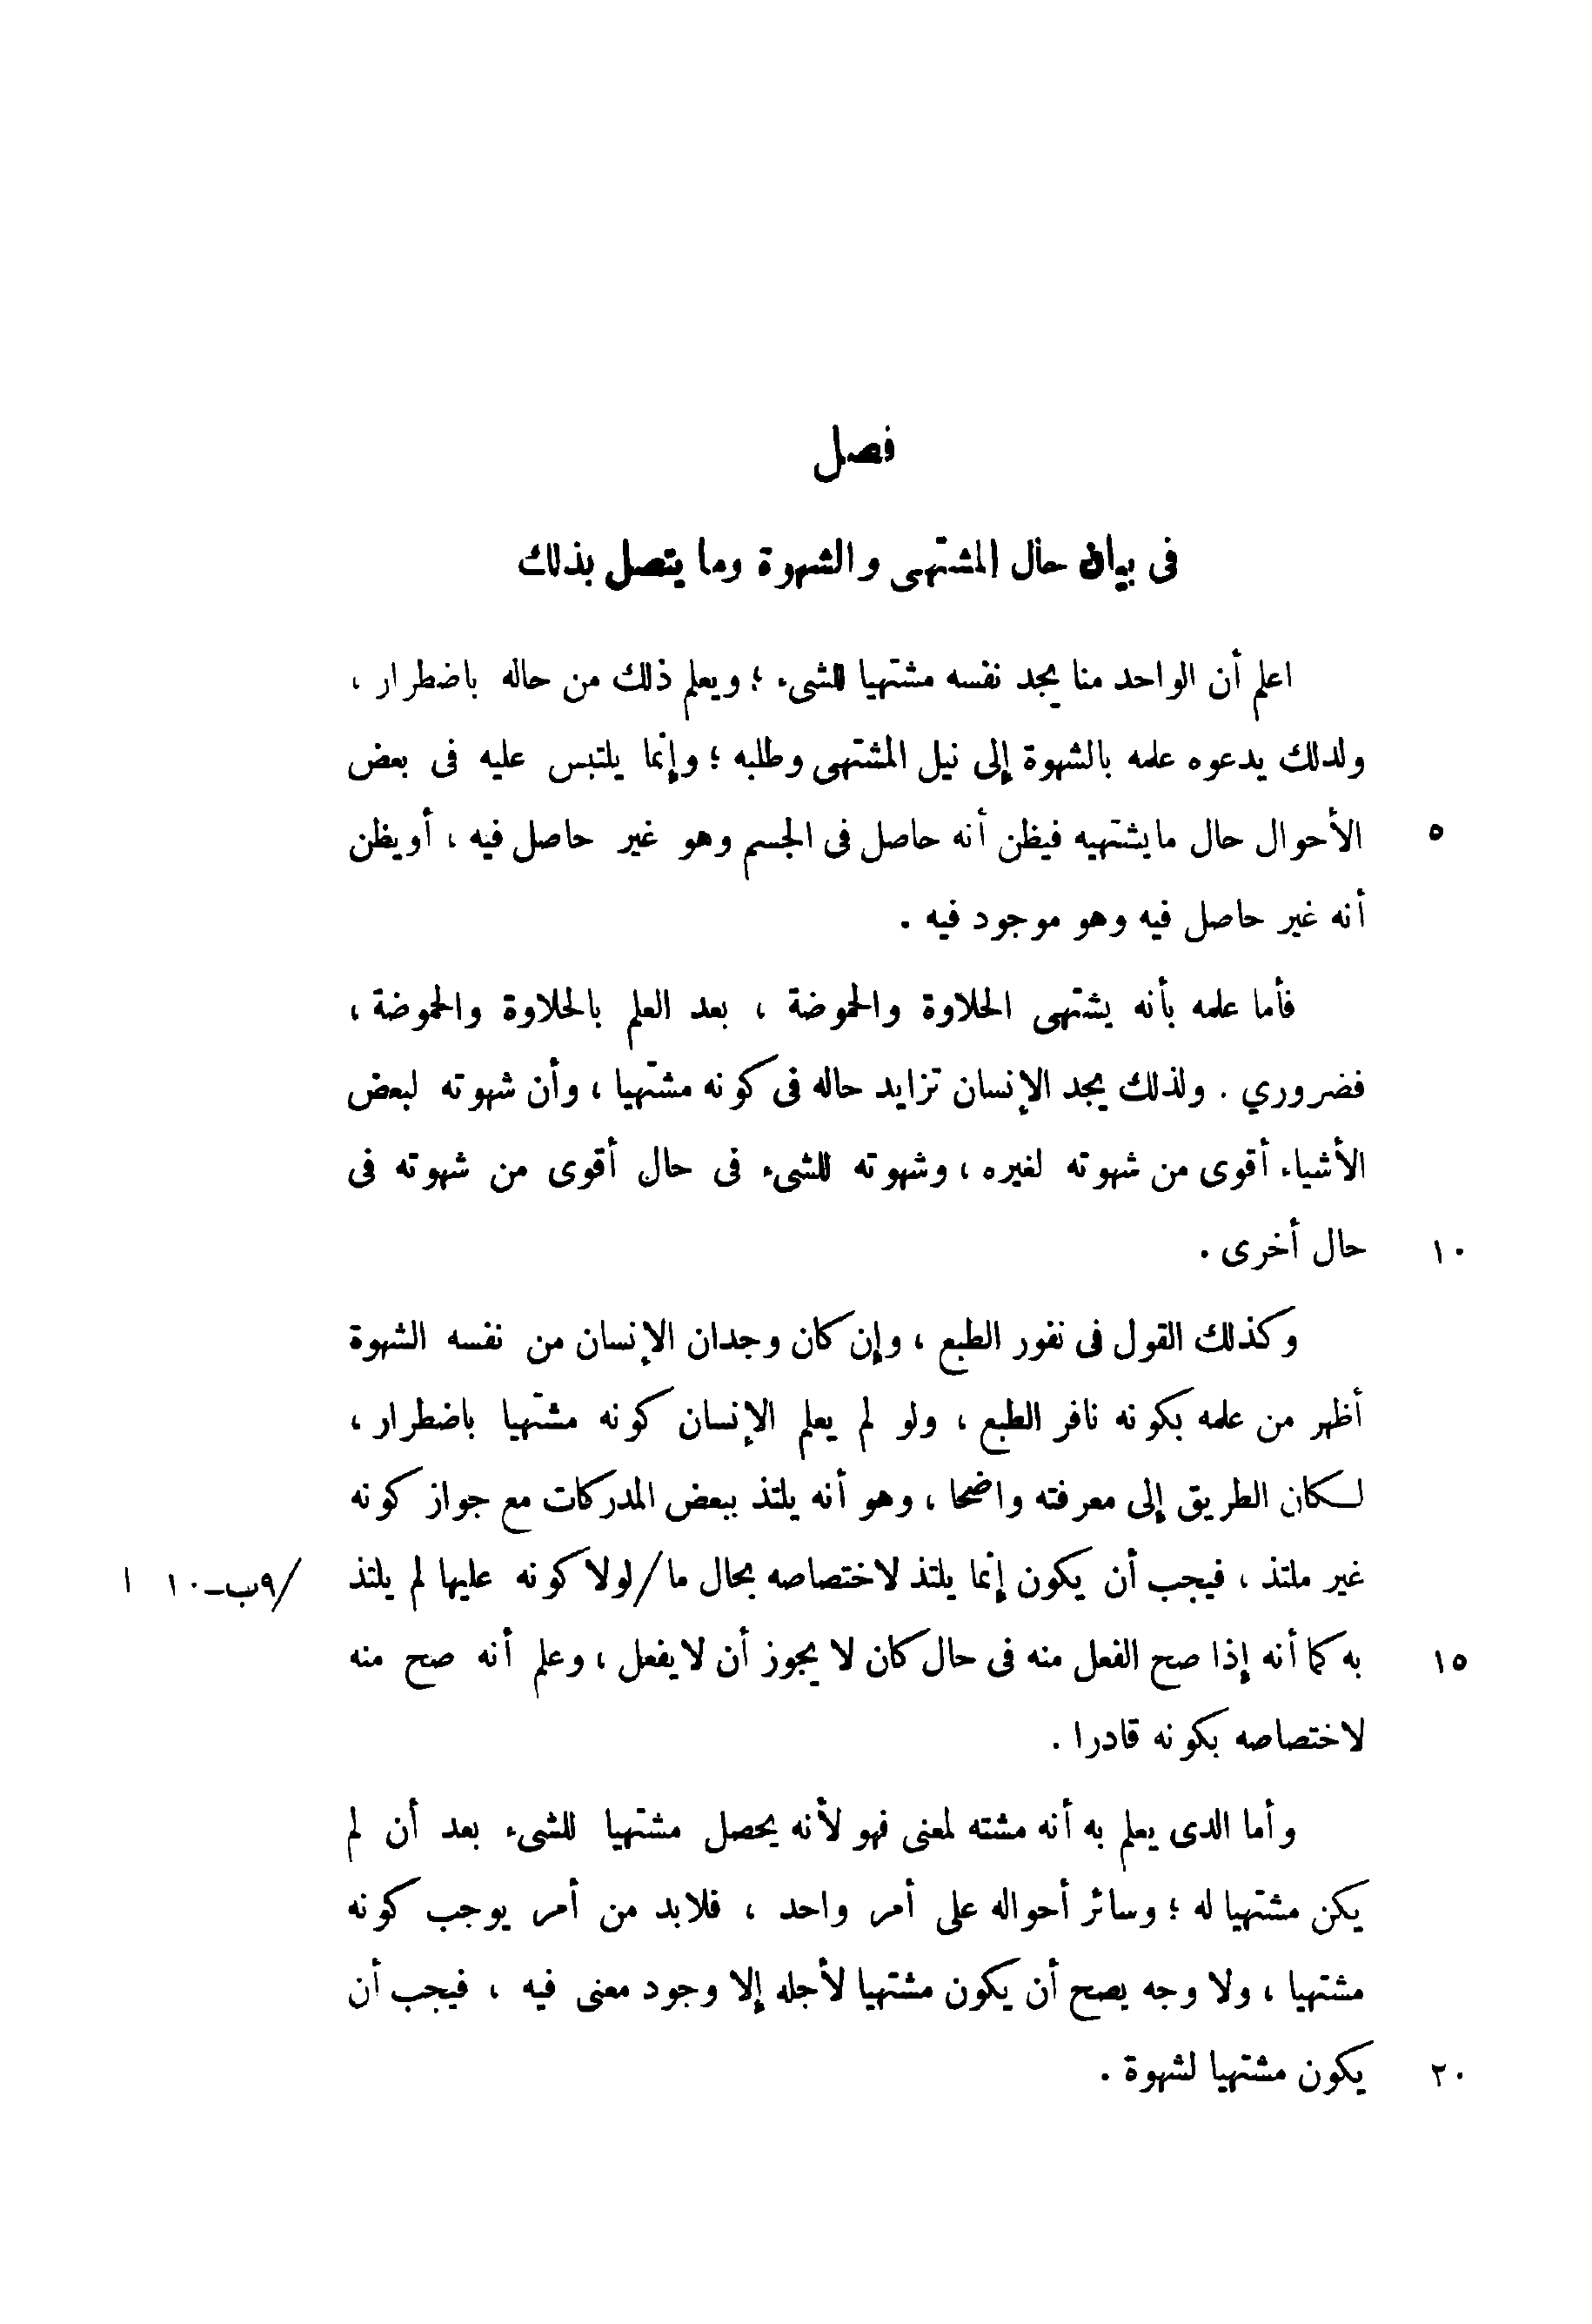 فصل
فى بيان حال المشتهى والشهوة وما يتصل بذلك
اعلم أن الواحد منا يجد نفسه مشتهيا للشىء ؛ ويعلم ذلك من حاله باضطرار ،
ولذلك يدعوه علمه بالشهوة إلى نيل المشتهى وطلبه ؛ وإنما يلتبس عليه فى بعض
٥ الأحوال حال مايشتهيه فيظن أنه حاصل فى الجسم وهو غير حاصل فيه ، أويظن
أنه غير حاصل فيه وهو موجود فيه .
فأما علمه بأنه يشتهى الحلاوة والحموضة ، بعد العلم بالحلاوة والحموضة ،
فضروري . ولذلك يجد الإنسان تزايد حاله فى كونه مشتهيا ، وأن شهوته لبعض
الأشياء أقوى من شهوته لغيره ، وشهوته للشىء فى حال أقوى من شهوته فى
١٠ حال أخرى .
وكذلك القول فى نفور الطبع ، وإن كان وجدان الإنسان من نفسه الشهوة
أظهر من علمه بكونه نافر الطبع ، ولو لم يعلم الإنسان كونه مشتهيا باضطرار ،
لكان الطريق إلى معرفته واضحا ، وهو أنه يلتذ ببعض المدركات مع جواز كونه
غير ملتذ ، فيجب أن يكون إنما يلتذ لاختصاصه بحال ما/لولا كونه عليها لم يلتذ /٩ب-١٠ ا
١٥ به كما أنه إذا صح الفعل منه فى حال كان لا يجوز أن لايفعل ، وعلم أنه صح منه
لاختصاصه بكونه قادرا .
وأما الذى يعلم به أنه مشته لمعنى فهو لأنه يحصل مشتهيا للشىء بعد أن لم
يكن مشتهيا له ؛ وسائر أحواله على أمر واحد ، فلابد من أمر يوجب كونه
مشتهيا ، ولا وجه يصح أن يكون مشتهيا لأجله إلا وجود معنى فيه ، فيجب أن
٢٠ يكون مشتهيا لشهوة .